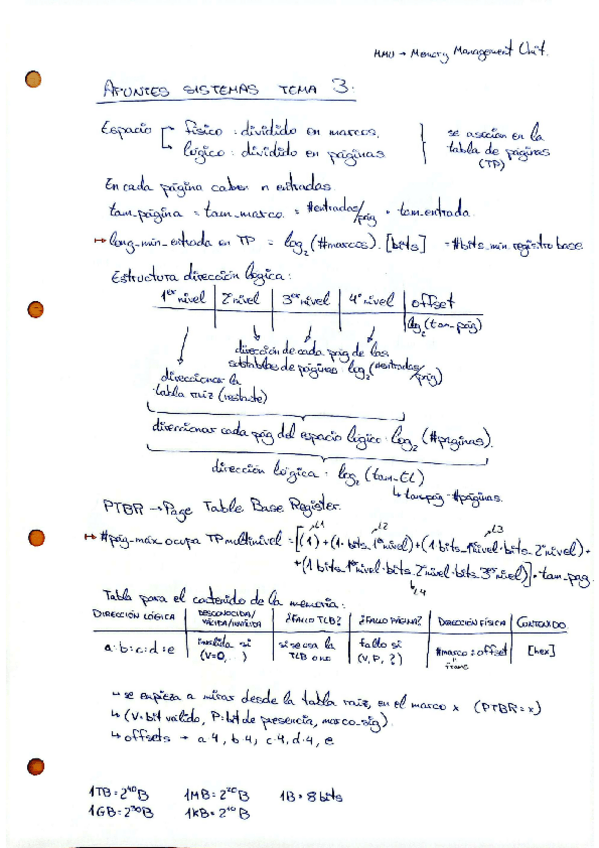 MMU → Memory Management Unit.
APUNTES SISTEMAS TEMA 3:
Espacio físico: dividido en marcos.
lógico: dividido en páginas
se asocian en la
tabla de páginas
(TP)
En cada página caben n entradas.
tam_página = tam_marco = #entradas/pág · tam_entrada.
↦ long_min_entrada en TP = log₂(#marcos). [bits] = #bits_min registro base
Estructura dirección lógica:
1er nivel | 2º nivel | 3er nivel | 4º nivel | offset
log₂(tam-pág)
dirección de cada pág de las
subtablas de páginas: log₂(#entradas/pág)
direccionar la
tabla raíz (restante)
direccionar cada pág del espacio lógico: log₂(#páginas).
dirección lógica: log₂(tam_EL)
↳ tampág · #páginas.
PTBR → Page Table Base Register.
L1 L2 L3
↦ #pág-máx ocupa TP multinivel = [(1) + (1·bits_1er nivel) + (1 bits_1er nivel·bits_2º nivel) +
+ (1 bits_1er nivel·bits_2º nivel·bits_3er nivel)] · tam_pág.
L4
Tabla para el contenido de la memoria:
DIRECCIÓN LÓGICA | DESCONOCIDA/VÁLIDA/INVÁLIDA | ¿FALLO TLB? | ¿FALLO PÁGINA? | DIRECCIÓN FÍSICA | CONTENIDO
a:b:c:d:e | inválida si (V=0, ..) | si se usa la TLB o no | fallo si (V, P, ?) | #marco : offset | [hex]
frame
↳ se empieza a mirar desde la tabla raíz, en el marco x (PTBR=x)
↳ (V·bit válido, P·bit de presencia, marco-sig).
↳ offsets → a·4, b·4, c·4, d·4, e
1TB = 2⁴⁰B 1MB = 2²⁰B 1B = 8 bits
1GB = 2³⁰B 1KB = 2¹⁰B